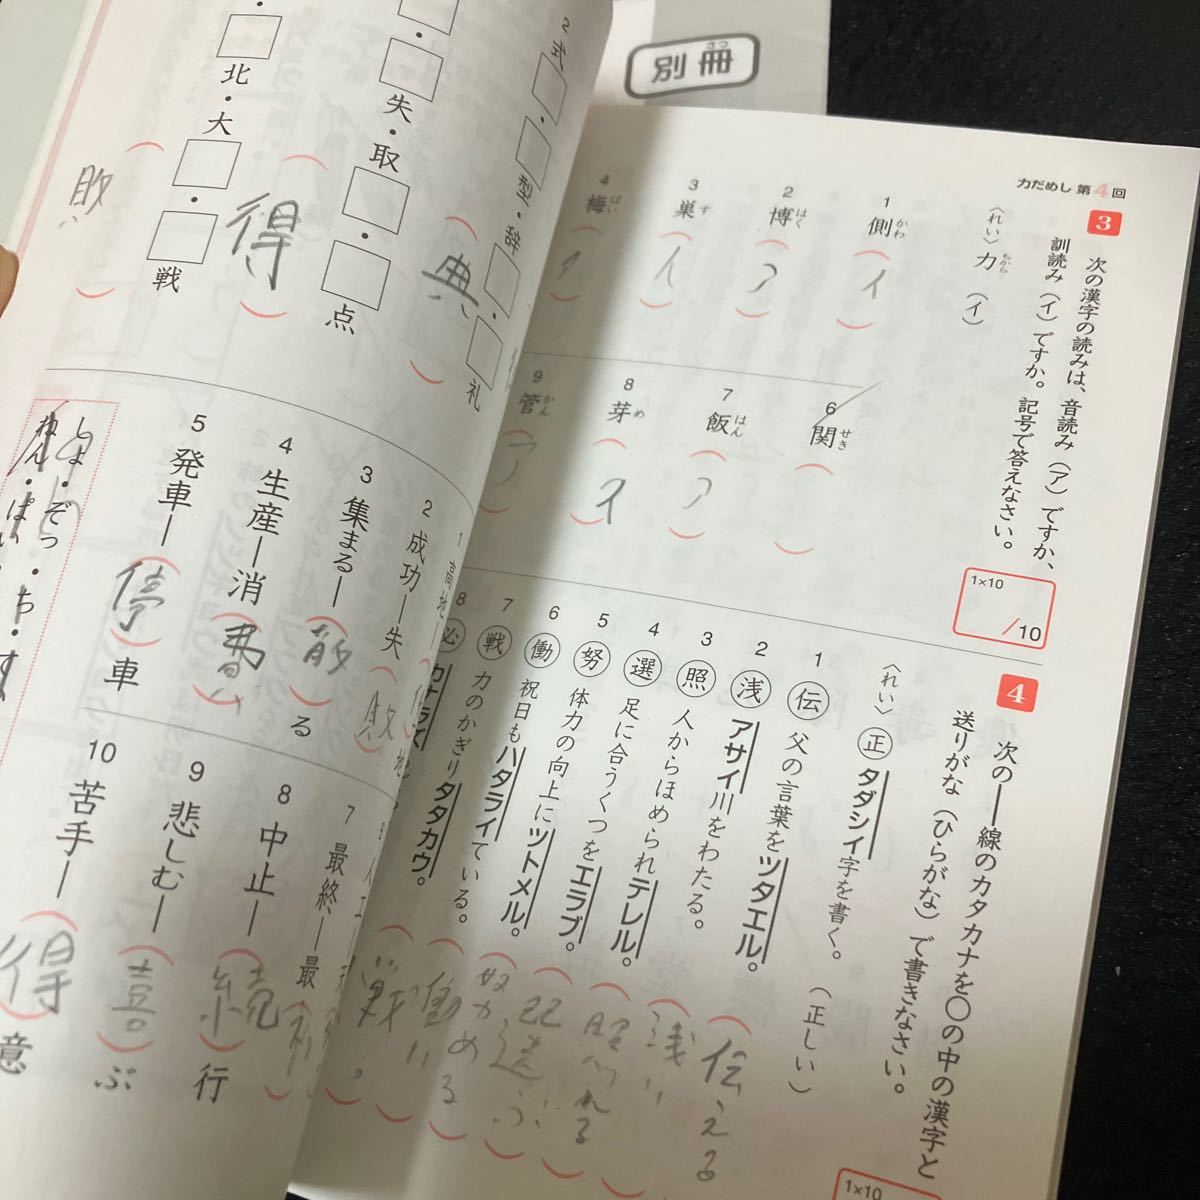 別冊
さつ
力だめし 第4回
3 次の漢字の読みは、音読み(ア)ですか、
訓読み(イ)ですか。記号で答えなさい。
〈れい〉力 ちから (イ)
1 側 かわ (イ)
2 博 はく (ア)
3 巣 す (イ)
4 梅 ばい (ア)
6 関 せき ( )
7 飯 はん (ア)
8 芽 め (イ)
9 管 かん (ア)
1×10
/10
4 次の―線のカタカナを○の中の漢字と
送りがな(ひらがな)で書きなさい。
〈れい〉正 タダシイ字を書く。 (正しい)
1 伝 父の言葉をツタエル。 (伝える
2 浅 アサイ川をわたる。 (浅い
3 照 人からほめられテレル。 (照れる
4 選 足に合うくつをエラブ。 (選ぶ
5 努 体力の向上にツトメル。 (努める
6 働 祝日もハタライている。 (働い
7 戦 力のかぎりタタカウ。 (戦
8 必 カナラズ
1×10
2 式□・□型・辞□・□礼
(典)
□・□失・取□・□点
(得)
□北・大□・□戦
(敗)
1 高地―(低)地
2 成功―失(敗)
3 集まる―(散)る
4 生産―消(費)
5 発車―(停)車
6 人工―
7 最終―最(初)
8 中止―(続)行
9 悲しむ―(喜)ぶ
10 苦手―(得)意
しょ・ぞっ・ち・す
ねん・ぱい